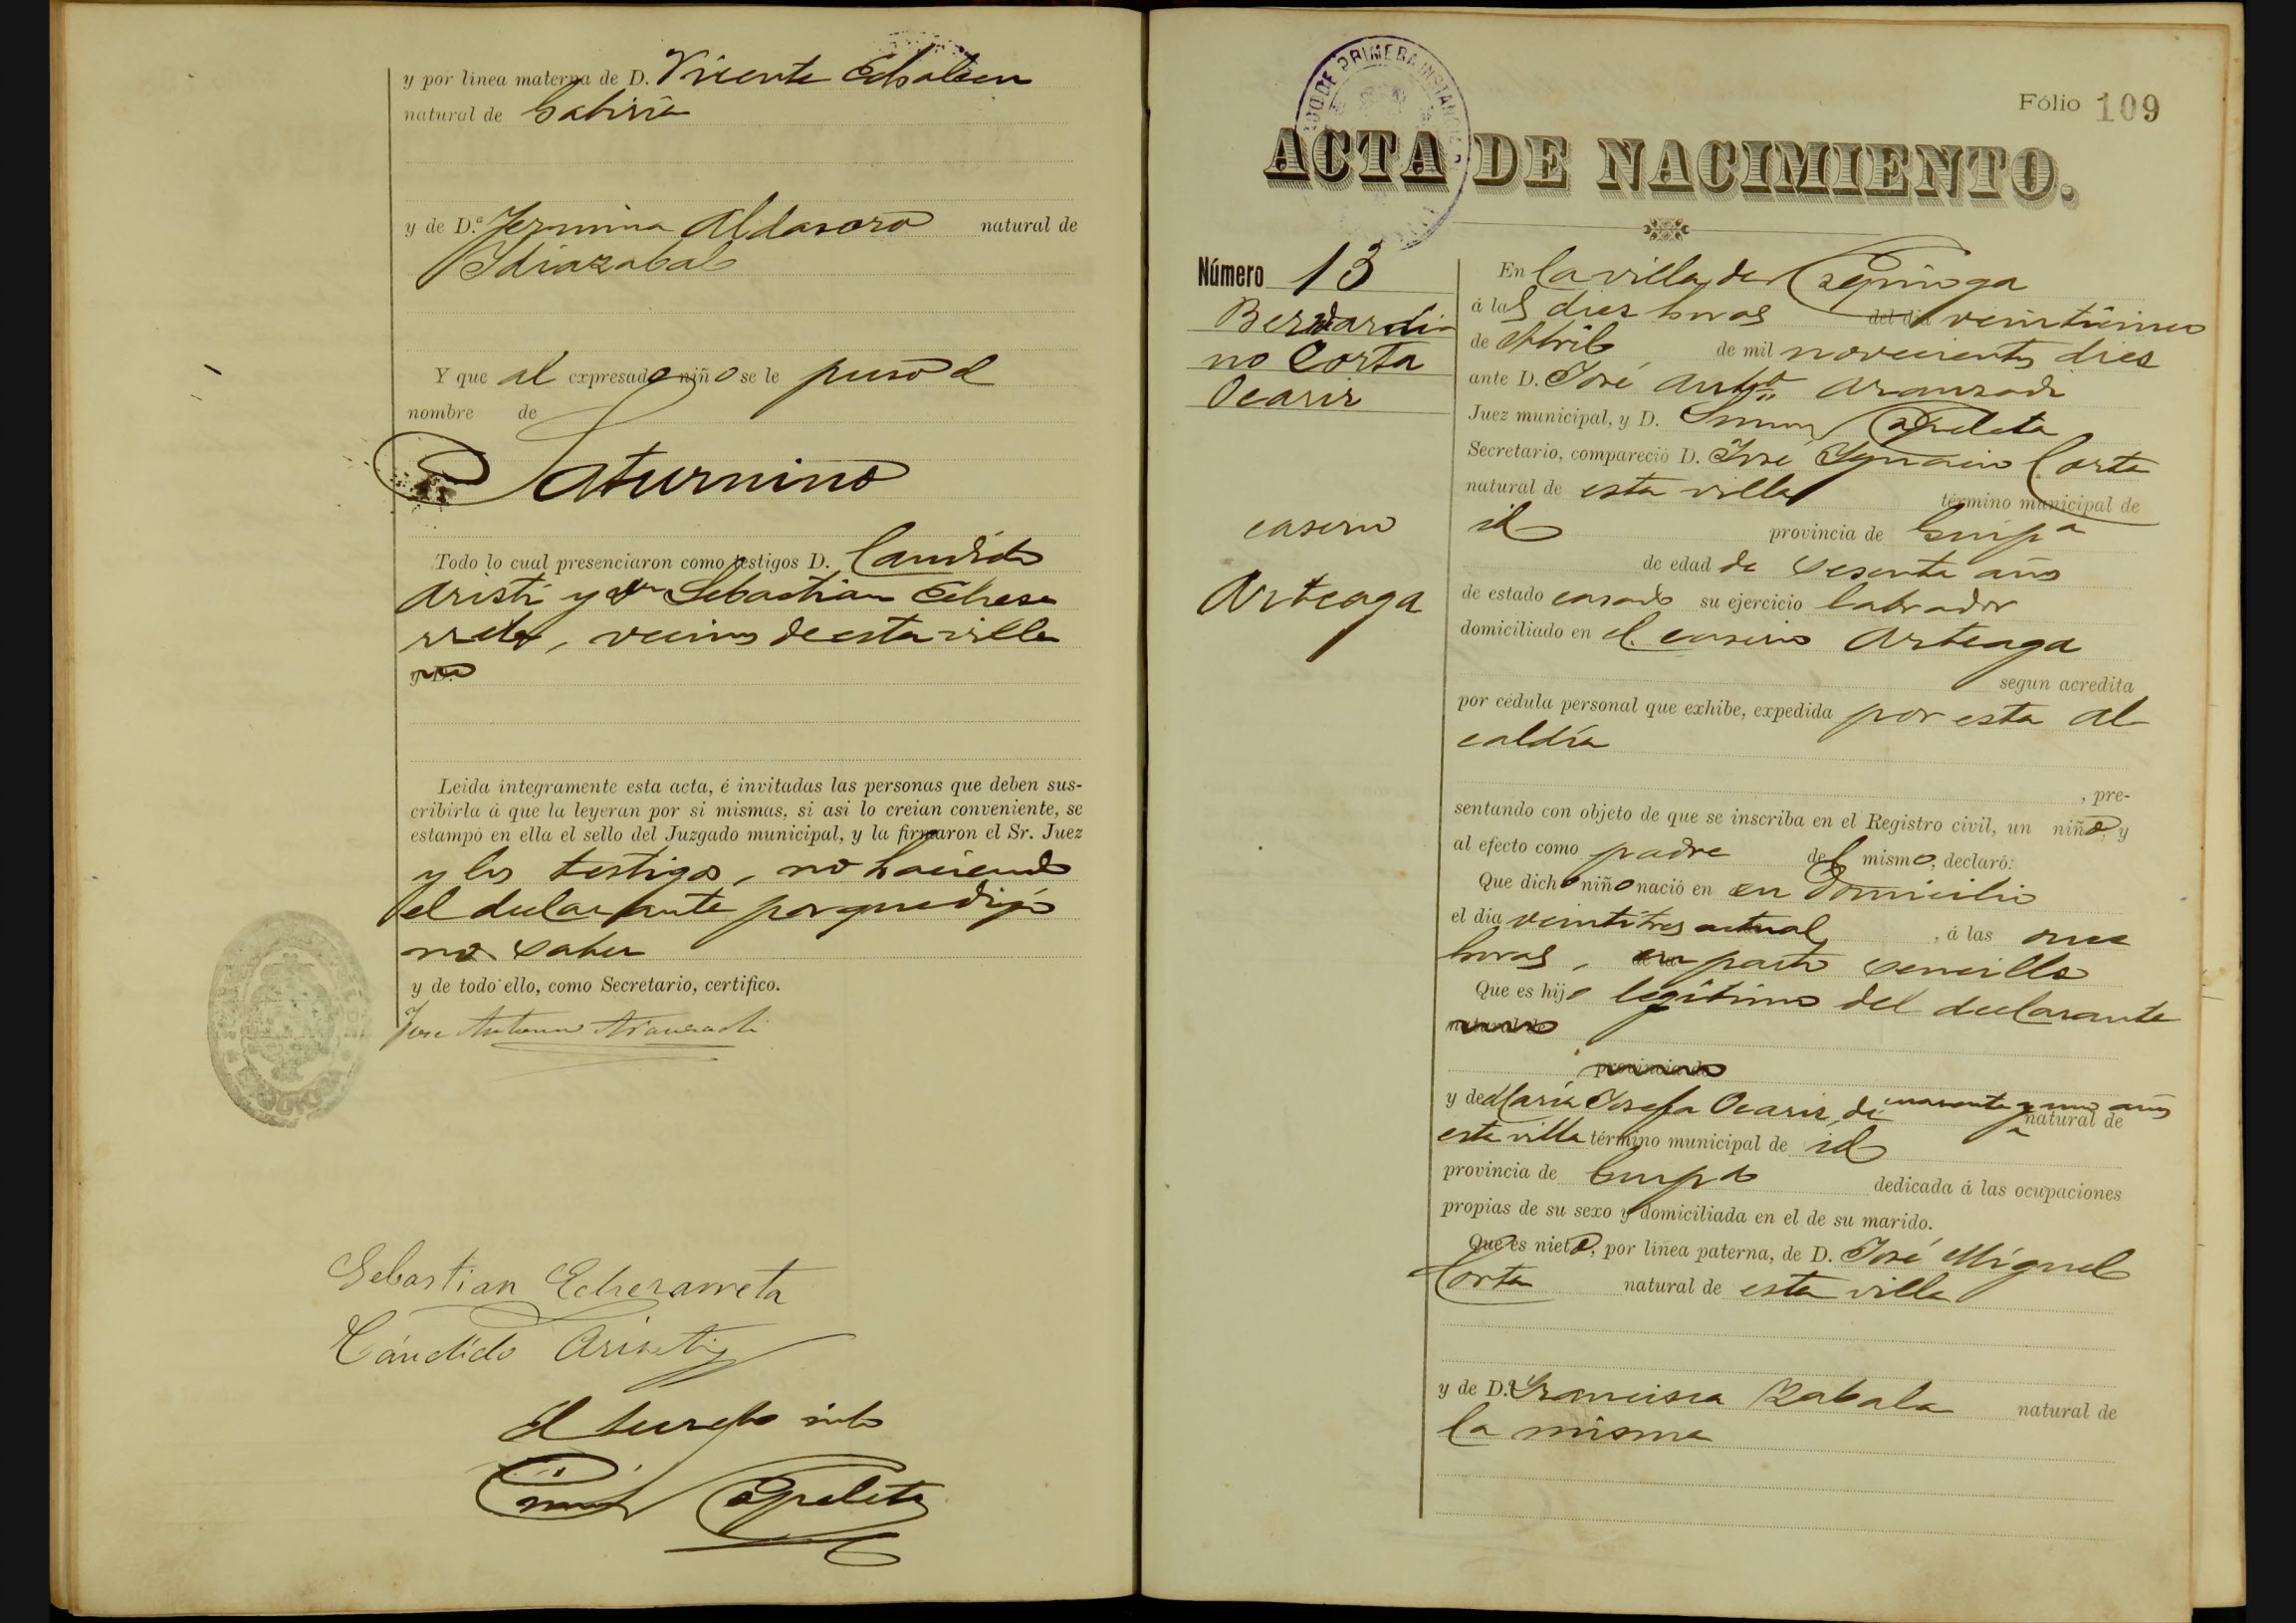 y por línea materna de D. Vicente Echateen
natural de Gabiria
y de D.ª Fermina Aldasoro natural de
Idiazabal
Y que al expresado niño se le puso el
nombre de
Saturnino
Todo lo cual presenciaron como testigos D. Candido
Aristi y Dn Sebastian Echesa
rreta, vecinos de esta villa
Leida íntegramente esta acta, é invitadas las personas que deben sus-
cribirla á que la leyeran por si mismas, si asi lo creian conveniente, se
estampó en ella el sello del Juzgado municipal, y la firmaron el Sr. Juez
y los testigos, no haciendo
el declarante porque dijo
no saber
y de todo ello, como Secretario, certifico.
Jose Antonio Aranzadi
Sebastian Echezarreta
Cándido Aristi
El Secreto into
Apeleta
JUZGADO DE PRIMERA INSTANCIA
Fólio 109
ACTA DE NACIMIENTO.
Número 13
Bernardi
no Corta
Ocariz
caserio
Arteaga
En la villa de Ezquioga
á las diez horas del dia veinticinco
de Abril de mil novecientos diez
ante D. José Antº Aranzadi
Juez municipal, y D. Apeleta
Secretario, compareció D. José Ygnacio Corta
natural de esta villa término municipal de
id provincia de Guipª
de edad de sesenta años
de estado casado su ejercicio labrador
domiciliado en el caserio Arteaga
segun acredita
por cédula personal que exhibe, expedida por esta Al
caldía
, pre-
sentando con objeto de que se inscriba en el Registro civil, un niño, y
al efecto como padre del mismo, declaró:
Que dicho niño nació en su domicilio
el dia veintitres actual, á las once
horas, en parto sencillo
Que es hijo legítimo del declarante
y de María Josefa Ocariz, de cuarenta y un años natural de
esta villa término municipal de id
provincia de Guipª dedicada á las ocupaciones
propias de su sexo y domiciliada en el de su marido.
Que es nieto, por línea paterna, de D. José Miguel
Corta natural de esta villa
y de D.ª Francisca Zabala natural de
la misma